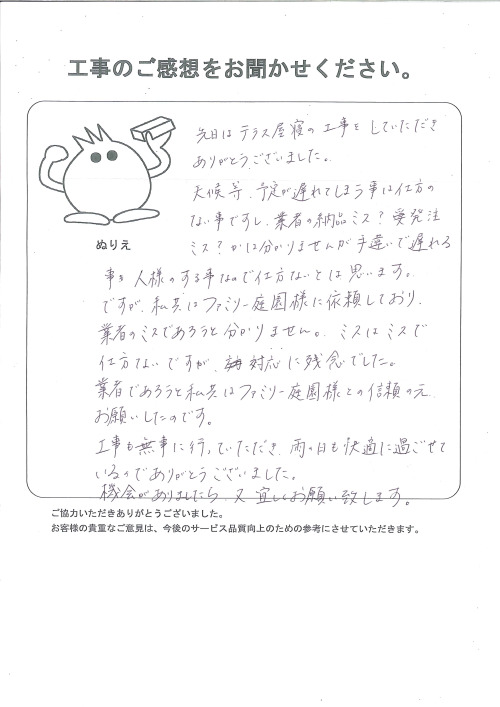 工事のご感想をお聞かせください。
先日は テラス屋寝の工事を していただき
ありがとうございました。
天候等、予定が遅れてしまう事は仕方の
ない事ですし、業者の納品ミス？受発注
ミス？かは分かりませんが手違いで遅れる
ぬりえ
事も 人様のする事なので仕方ないとは思います。
ですが、私共はファミリー庭園様に依頼しており、
業者のミスであろうと分かりません。ミスはミスで
仕方ないですが、対応に残念でした。
業者であろうと私共はファミリー庭園様との信頼の元
お願いしたのです。
工事も無事に行っていただき、雨の日も快適に過ごせて
いるのでありがとうございました。
機会がありましたら、又宜しくお願い致します。
ご協力いただきありがとうございました。
お客様の貴重なご意見は、今後のサービス品質向上のための参考にさせていただきます。